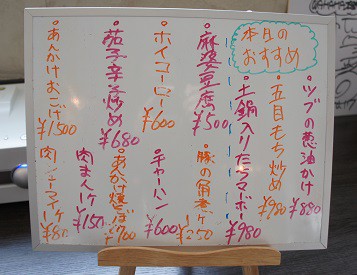 本日の
おすすめ
・ツブの葱油かけ ¥880
・五目もち炒め ¥980
・土鍋入りたラマーボー ¥980
・麻婆豆腐 ¥500
・豚の角煮1ケ ¥250
・ホイコーロー ¥600
・チャーハン ¥600
・茄子辛子炒め ¥680
・あんかけ焼そば ¥700
・あんかけおこげ ¥1500
・肉まん1ケ ¥150
・肉シューマイ1ケ